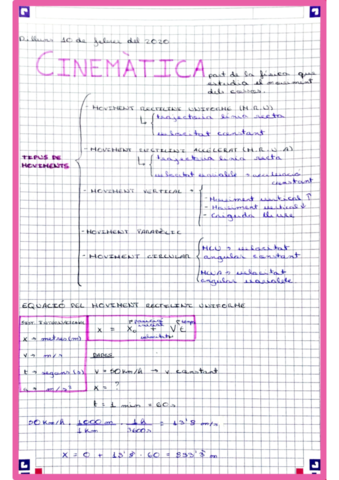 Dilluns 10 de febrer del 2020
CINEMÀTICA part de la física que
estudia el moviment
dels cossos.
- MOVIMENT RECTILINI UNIFORME (M.R.U)
↳ trajectòria línia recta
velocitat constant
- MOVIMENT RECTILINI ACCELERAT (M.R.U.A)
↳ trajectòria línia recta
velocitat variable → acceleració
constant
TIPUS DE
MOVIMENTS
- MOVIMENT VERTICAL →
- Moviment vertical ↑
- Moviment vertical ↓
- Caiguda lliure
- MOVIMENT PARABÒLIC
- MOVIMENT CIRCULAR
MCU → velocitat
angular constant
MCUA → velocitat
angular variable
EQUACIÓ DEL MOVIMENT RECTILINI UNIFORME
x = x₀ + v t
velocitat
x → metres (m)
v → m/s
t → segons (s)
a → m/s²
DADES
v = 50 km/h → v constant
x = ?
t = 1 min = 60s
50 km/h · 1000 m / 1 km · 1h / 3600s = 13'8 m/s
x = 0 + 13'8 · 60 = 833'3 m